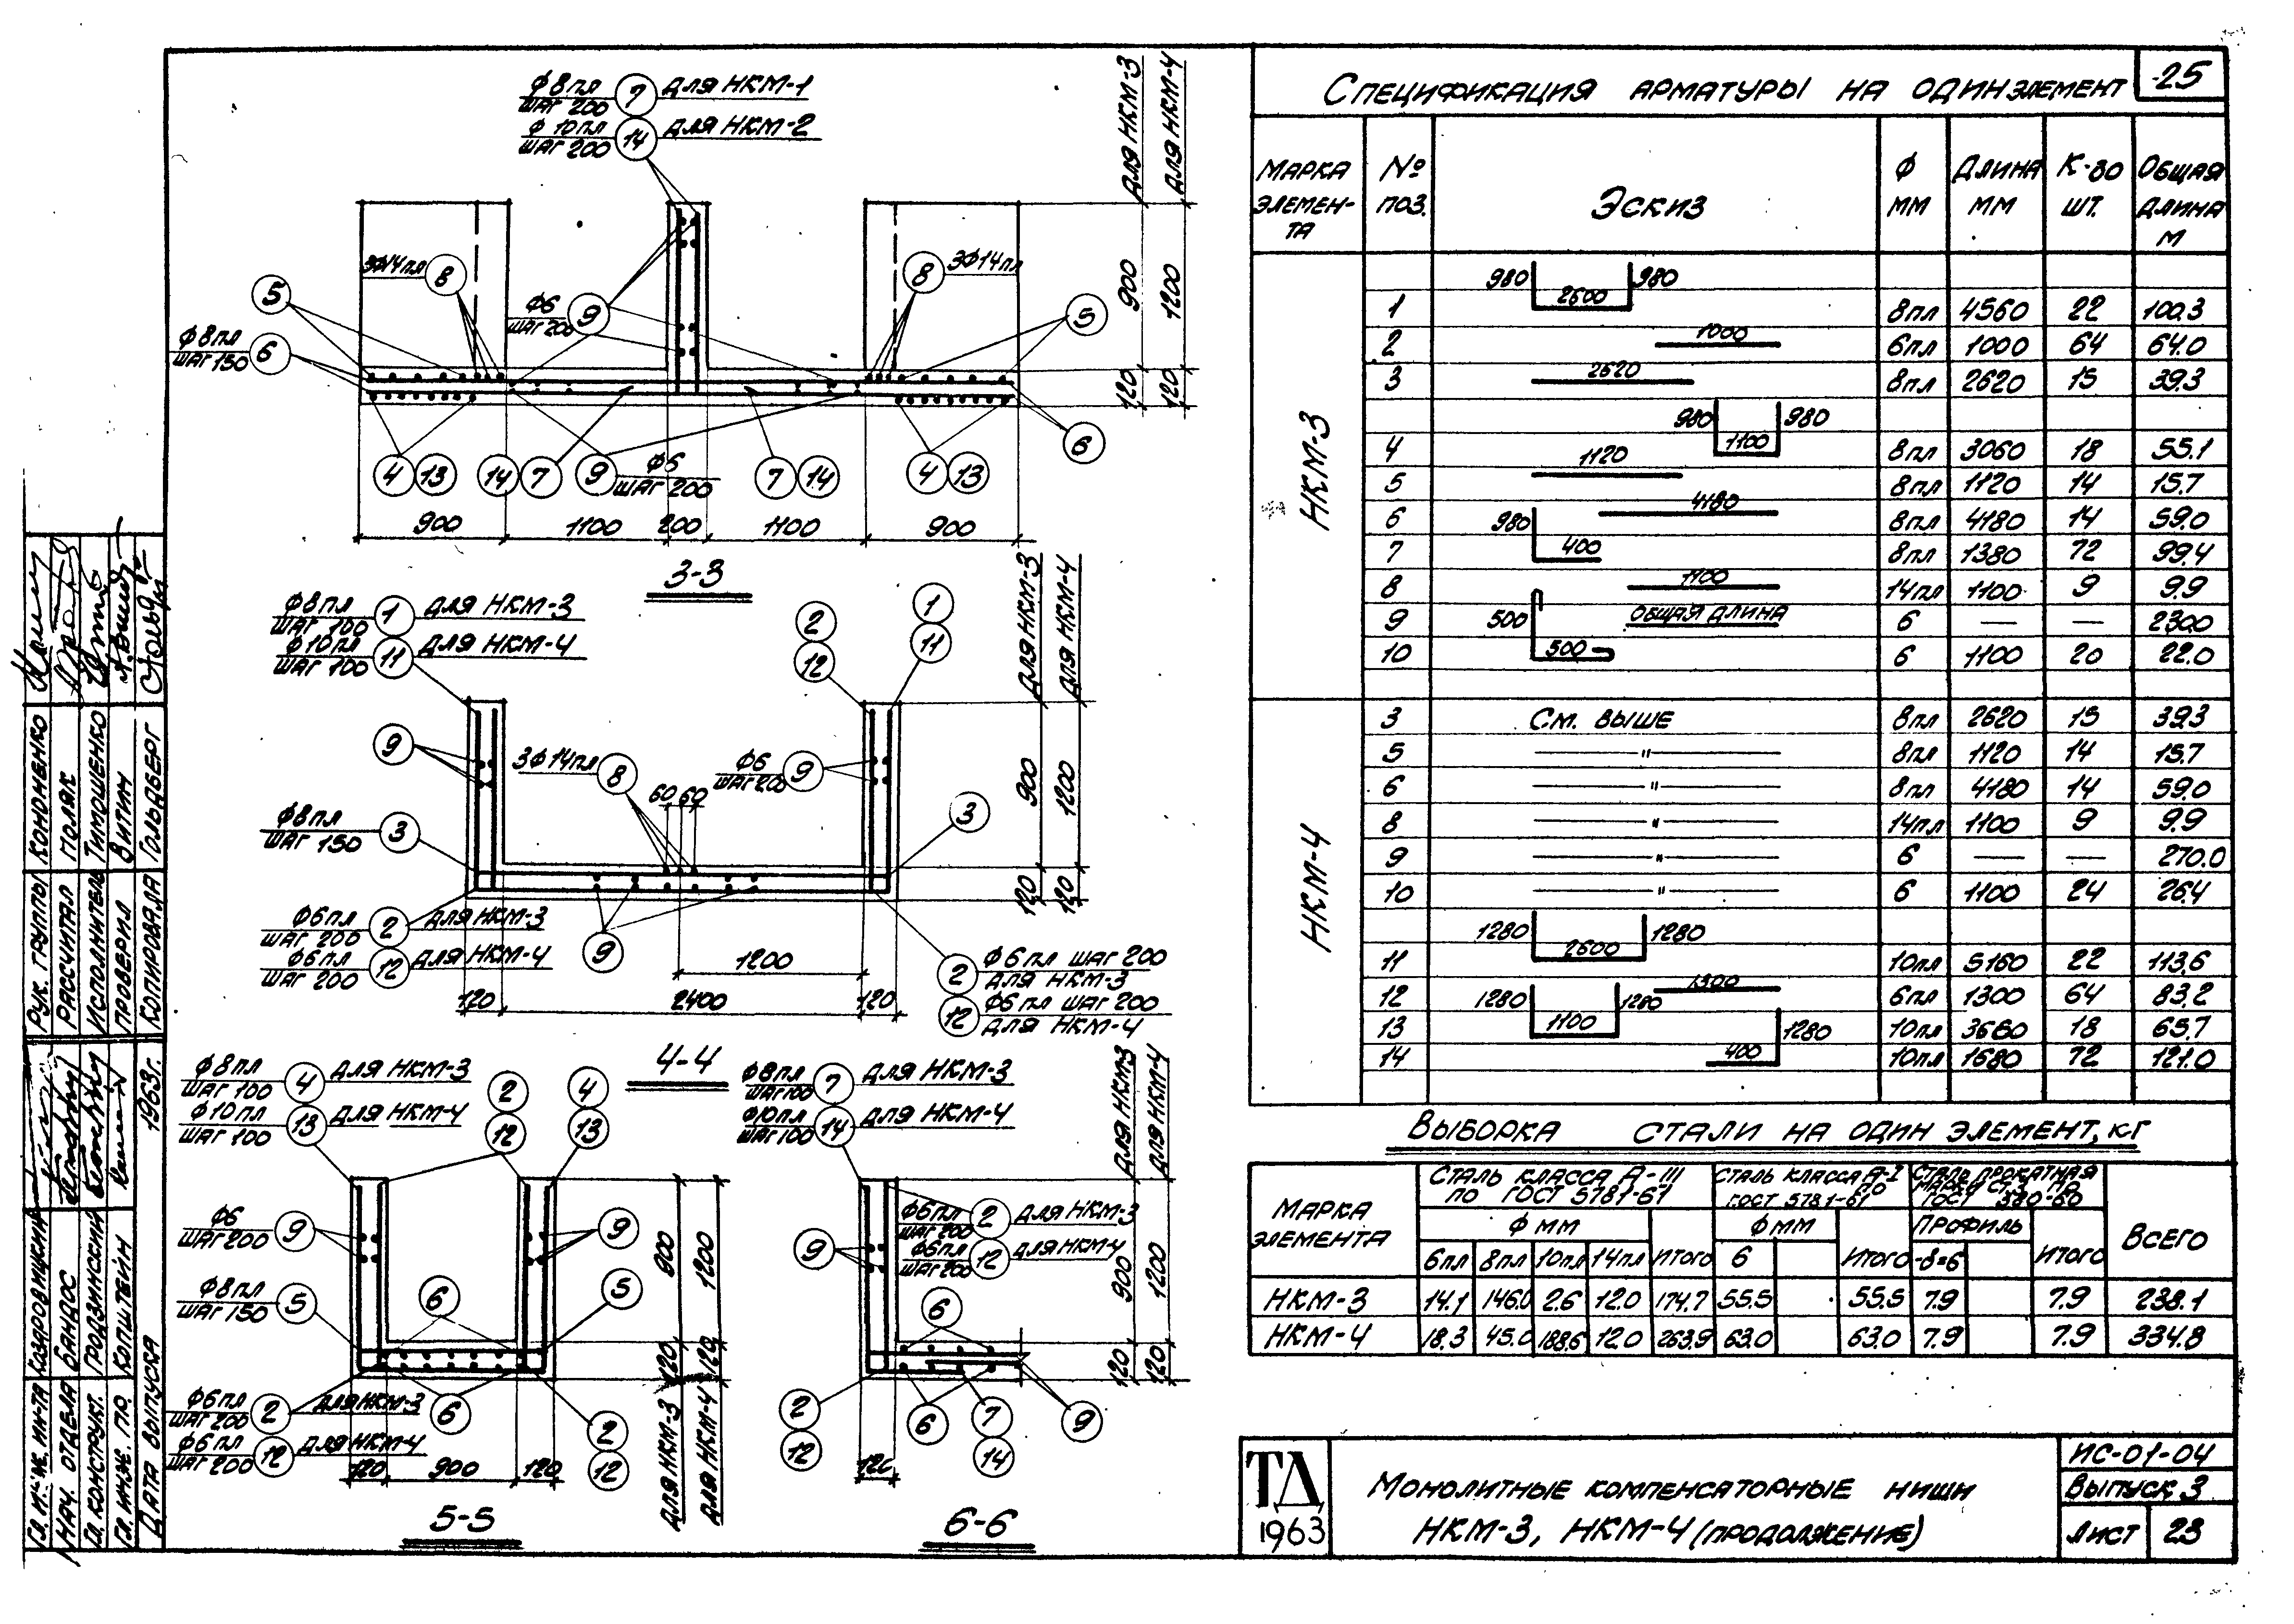 25
Спецификация арматуры на один элемент
Марка элемента № поз. Эскиз Ф мм Длина мм К-во шт. Общая длина м
НКМ-3
980 2600 980
1 8пл 4560 22 100.3
1000
2 6пл 1000 64 64.0
2620
3 8пл 2620 15 39.3
980 1100 980
4 8пл 3060 18 55.1
1120
5 8пл 1120 14 15.7
4180
6 8пл 4180 14 59.0
980 400
7 8пл 1380 72 99.4
1100
8 14пл 1100 9 9.9
9 Общая длина 6 — — 230.0
500 500
10 6 1100 20 22.0
НКМ-4
3 См. выше 8пл 2620 15 39.3
5 —"— 8пл 1120 14 15.7
6 —"— 8пл 4180 14 59.0
8 —"— 14пл 1100 9 9.9
9 —"— 6 — — 270.0
10 —"— 6 1100 24 26.4
1280 2600 1280
11 10пл 5160 22 113.6
1300
12 6пл 1300 64 83.2
1280 1100 1280
13 10пл 3660 18 65.7
400 1280
14 10пл 1680 72 121.0
Выборка стали на один элемент, кг
Марка элемента
Сталь класса А-III по ГОСТ 5781-61
Сталь класса А-I ГОСТ 5781-61
Сталь прокатная
ГОСТ 380-60
Всего
Ф мм Итого Ф мм Итого Профиль Итого
6пл 8пл 10пл 14пл 6 -δ=6
НКМ-3 14.1 146.0 2.6 12.0 174.7 55.5 55.5 7.9 7.9 238.1
НКМ-4 18.3 45.0 188.6 12.0 263.9 63.0 63.0 7.9 7.9 334.8
ТД
1963
Монолитные компенсаторные ниши
НКМ-3, НКМ-4 (продолжение)
ИС-01-04
Выпуск 3
Лист 23
Ф8пл шаг 200 7 для НКМ-1
Ф10пл шаг 200 14 для НКМ-2
для НКМ-3
для НКМ-4
3Ф14пл 8
8 3Ф14пл
5
Ф8пл шаг 150 6
Ф6 шаг 200 9
5
6
900 1200
120 120
4 13 14 7 9 Ф6 шаг 200 7 14 4 13
900 1100 200 1100 900
3-3
Ф8пл шаг 100 1 для НКМ-3
Ф10пл шаг 100 11 для НКМ-4
2 12
1 11
для НКМ-3
для НКМ-4
9
3Ф14пл 8
60 60
Ф6 шаг 200 9
Ф8пл шаг 150 3
3
900 1200
120 120
Ф6пл шаг 200 2 для НКМ-3
Ф6пл шаг 200 12 для НКМ-4
9
1200
2 Ф6пл шаг 200 для НКМ-3
12 Ф6пл шаг 200 для НКМ-4
120 2400 120
4-4
Ф8пл шаг 100 4 для НКМ-3
Ф10пл шаг 100 13 для НКМ-4
2 12
4 13
Ф6 шаг 200 9
9
Ф8пл шаг 150 5
6
5
900 1200
120 120
Ф6пл шаг 200 2 для НКМ-3
Ф6пл шаг 200 12 для НКМ-4
6
2 12
для НКМ-3
для НКМ-4
120 900 120
5-5
Ф8пл шаг 100 7 для НКМ-3
Ф10пл шаг 100 14 для НКМ-4
для НКМ-3
для НКМ-4
Ф6пл шаг 200 2 для НКМ-3
Ф6пл шаг 200 12 для НКМ-4
9
6
900 1200
120 120
2 12
6
7 14
9
6-6
Рук. группы Кононенко
Рассчитал Поляк
Исполнитель Тимошенко
Проверил Витин
Копировала Гольдберг
Нач. отдела Бандос
Гл. конструкт. Гродзинский
Гл. инж. пр. Копштейн
Дата выпуска 1963г.